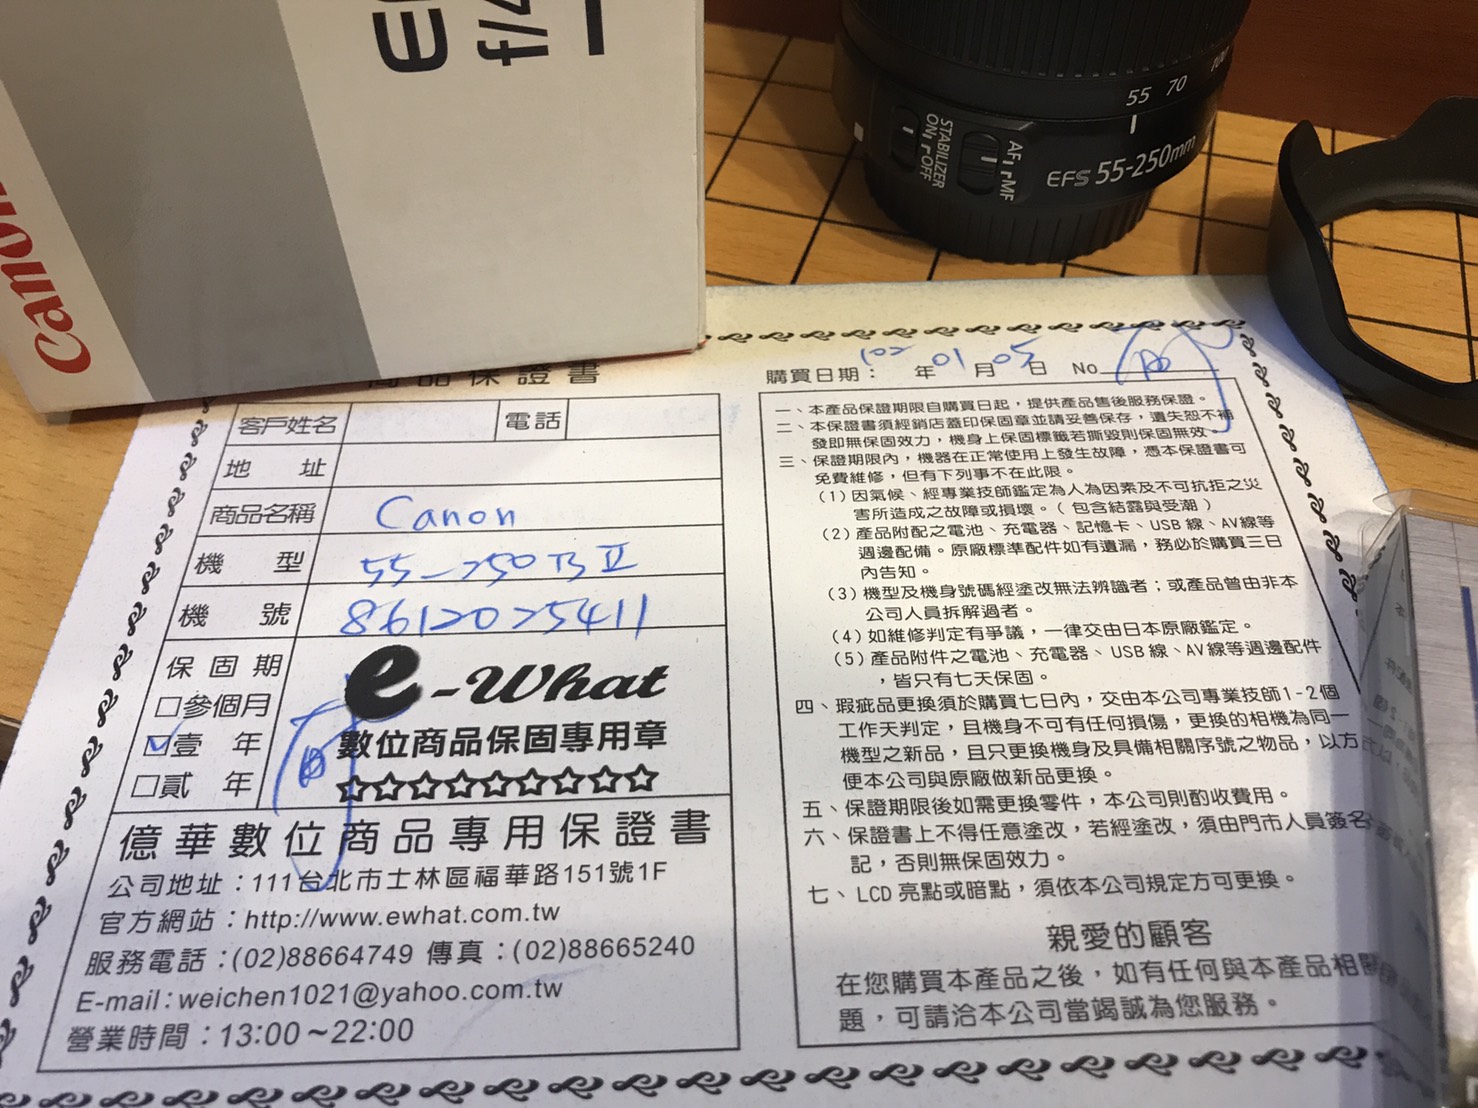 Canon
55 70 100
AF MF
STABILIZER
ON OFF
EFS 55-250mm
商品保證書
購買日期：102年01月05日 No
客戶姓名 電話
地址
商品名稱 Canon
機型 55-250 B II
機號 8612025411
保固期
□參個月
☑壹年
□貳年
e-What
數位商品保固專用章
☆☆☆☆☆☆☆☆☆
億華數位商品專用保證書
公司地址：111台北市士林區福華路151號1F
官方網站：http://www.ewhat.com.tw
服務電話：(02)88664749 傳真：(02)88665240
E-mail：weichen1021@yahoo.com.tw
營業時間：13:00～22:00
一、本產品保證期限自購買日起，提供產品售後服務保證。
二、本保證書須經銷店蓋印保固章並請妥善保存，遺失恕不補
發即無保固效力，機身上保固標籤若撕毀則保固無效。
三、保證期限內，機器在正常使用上發生故障，憑本保證書可
免費維修，但有下列事不在此限。
(1)因氣候、經專業技師鑑定為人為因素及不可抗拒之災
害所造成之故障或損壞。(包含結露與受潮)
(2)產品附配之電池、充電器、記憶卡、USB線、AV線等
週邊配備。原廠標準配件如有遺漏，務必於購買三日
內告知。
(3)機型及機身號碼經塗改無法辨識者；或產品曾由非本
公司人員拆解過者。
(4)如維修判定有爭議，一律交由日本原廠鑑定。
(5)產品附件之電池、充電器、USB線、AV線等週邊配件
，皆只有七天保固。
四、瑕疵品更換須於購買七日內，交由本公司專業技師1-2個
工作天判定，且機身不可有任何損傷，更換的相機為同一
機型之新品，且只更換機身及具備相關序號之物品，以方
便本公司與原廠做新品更換。
五、保證期限後如需更換零件，本公司則酌收費用。
六、保證書上不得任意塗改，若經塗改，須由門市人員簽名
記，否則無保固效力。
七、LCD亮點或暗點，須依本公司規定方可更換。
親愛的顧客
在您購買本產品之後，如有任何與本產品相關
題，可請洽本公司當竭誠為您服務。